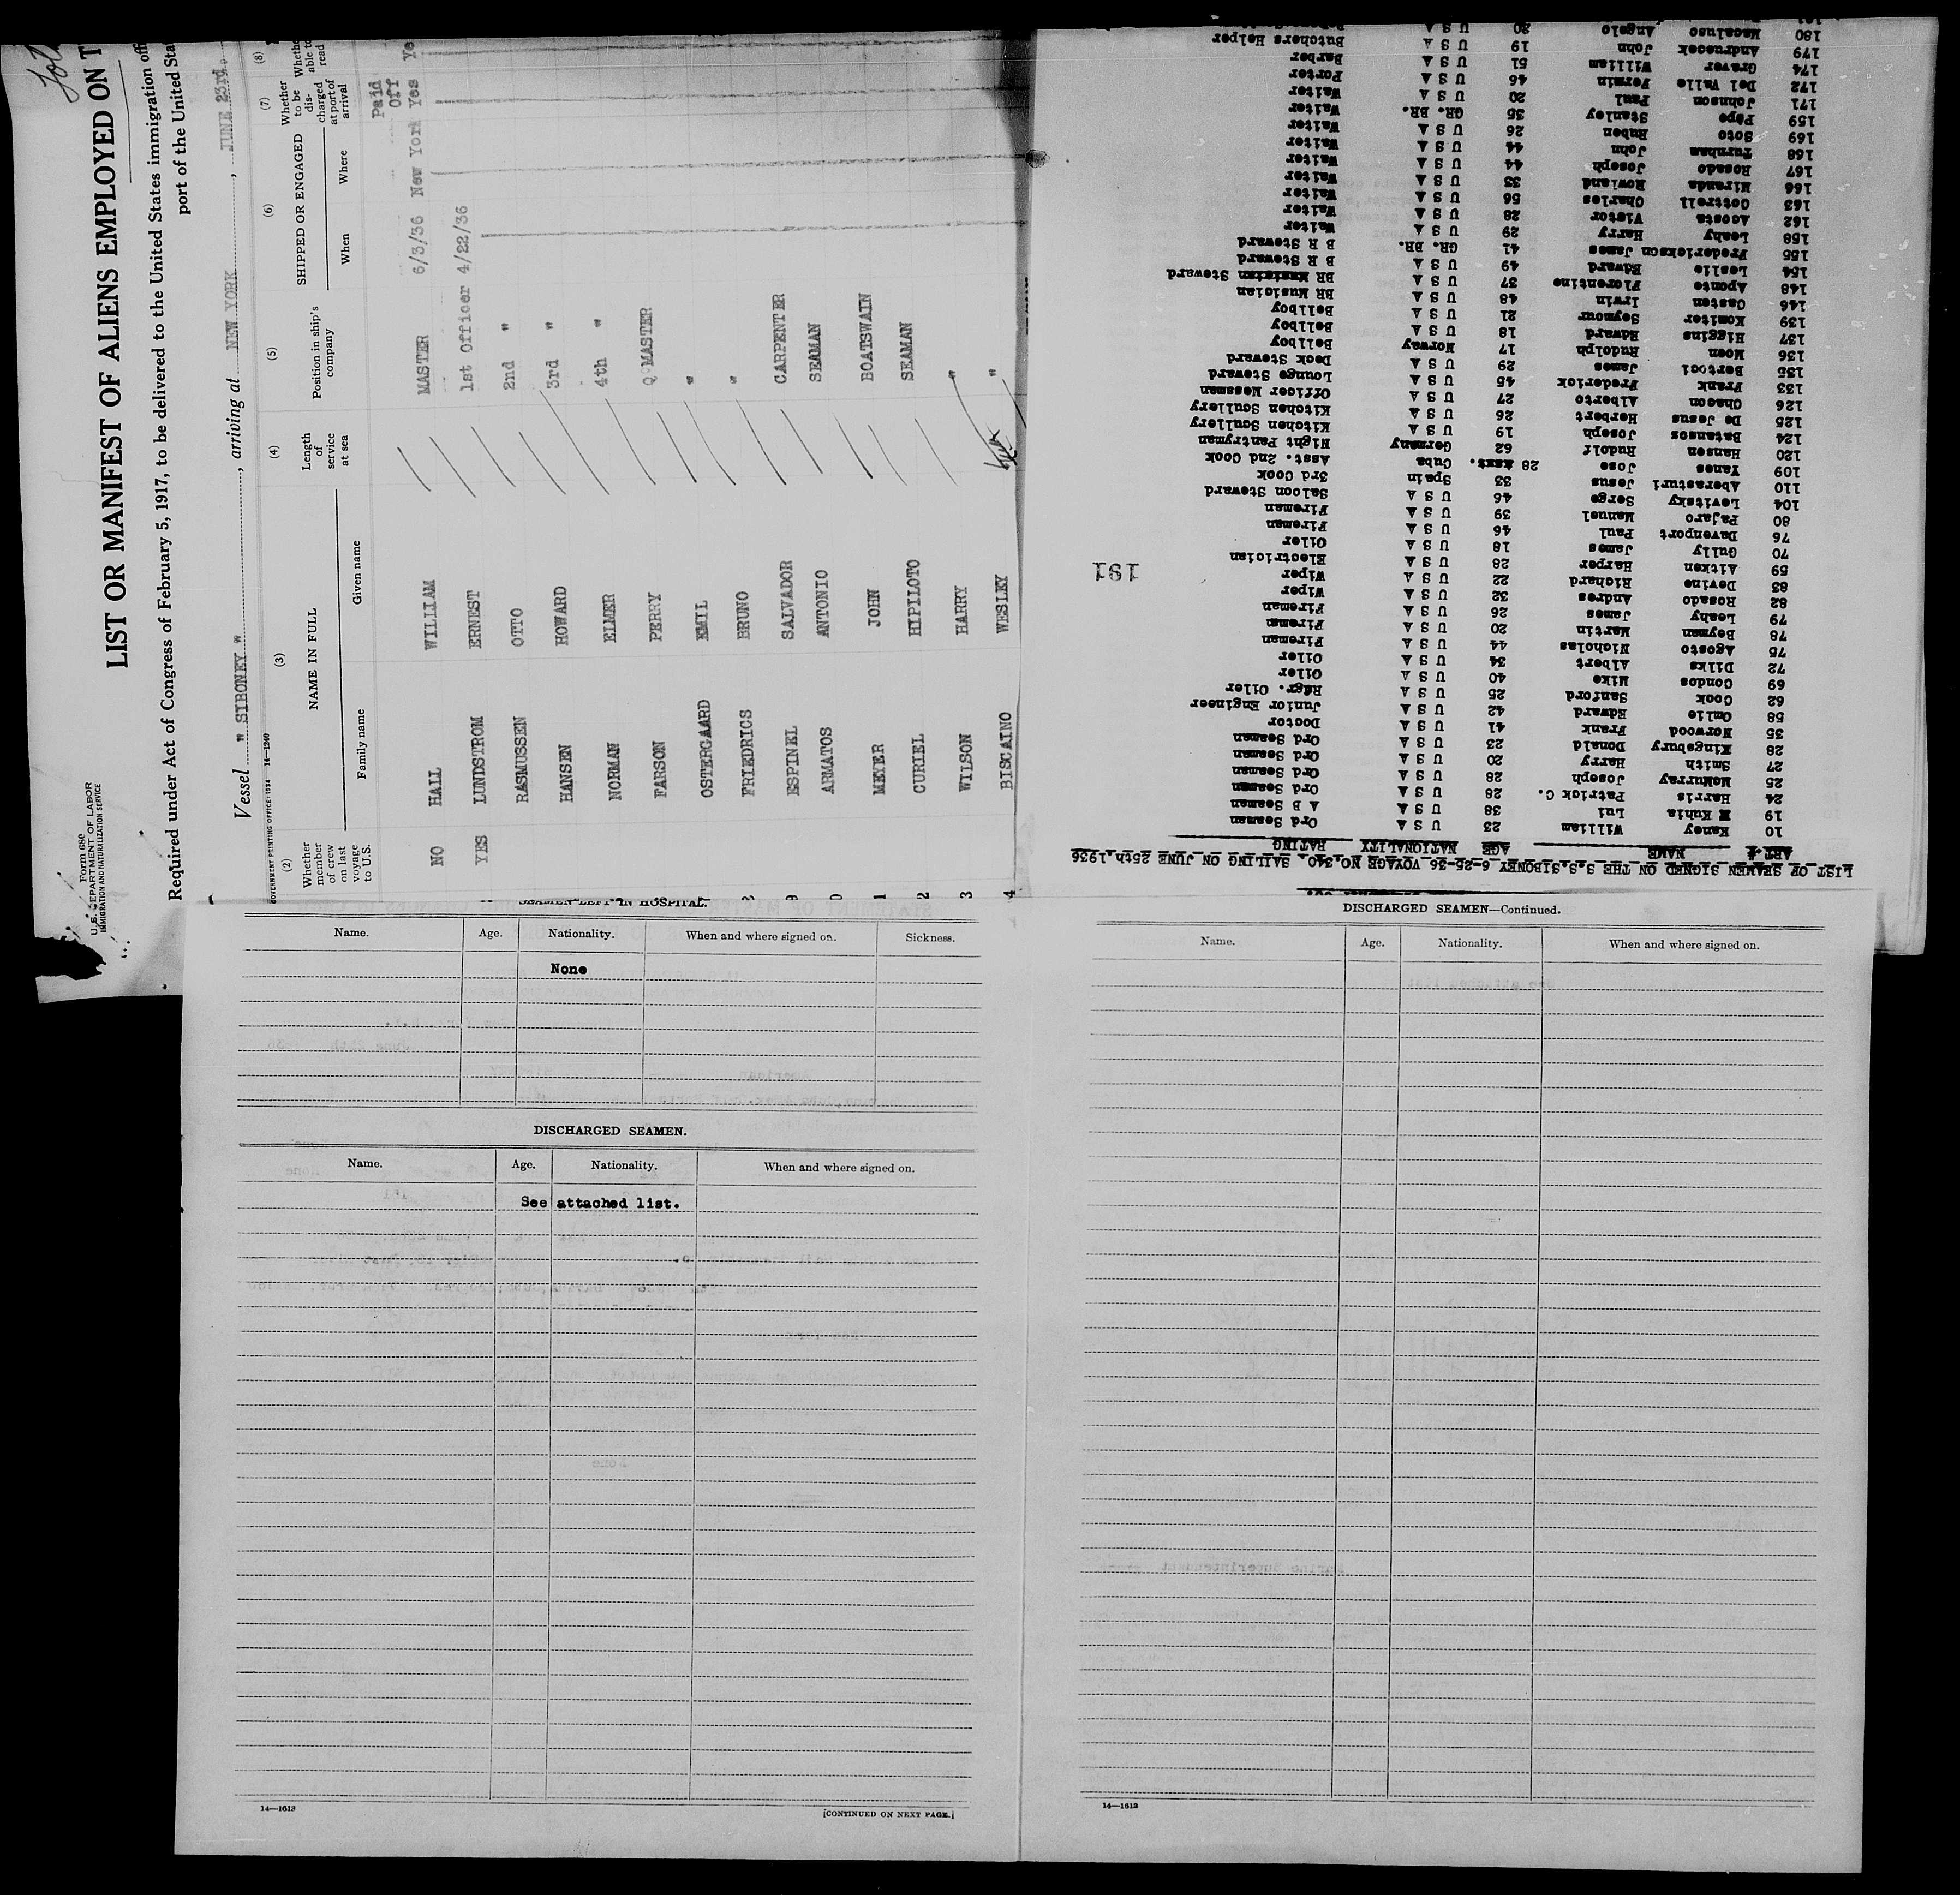 Form 680
U.S. DEPARTMENT OF LABOR
IMMIGRATION AND NATURALIZATION SERVICE
LIST OR MANIFEST OF ALIENS EMPLOYED ON T
Required under Act of Congress of February 5, 1917, to be delivered to the United States immigration offi
port of the United Sta
Vessel " SIBONEY ", arriving at NEW YORK, JUNE 23rd.
GOVERNMENT PRINTING OFFICE: 1934 14—1240
(2) Whether member of crew on last voyage to U.S.
(3) NAME IN FULL
Family name Given name
(4) Length of service at sea
(5) Position in ship's company
(6) SHIPPED OR ENGAGED
When Where
(7) Whether to be discharged at port of arrival
(8) Whethe able to read
Paid Off
NO HAIL WILLIAM MASTER 6/3/36 New York Yes Ye
YES LUNDSTROM ERNEST 1st Officer 4/22/36
RASMUSSEN OTTO 2nd "
HANSEN HOWARD 3rd "
NORMAN ELMER 4th "
FARSON PERRY Q-MASTER
OSTERGAARD EMIL "
FRIEDRICS BRUNO "
9 ESPINEL SALVADOR CARPENTER
0 ARMATOS ANTONIO SEAMAN
1 MEYER JOHN BOATSWAIN
2 CURIEL HIPILOTO SEAMAN
3 WILSON HARRY "
4 BISCAINO WESLEY "
LIST OF SEAMEN SIGNED ON THE S.S.SIBONEY 6-25-36 VOYAGE NO.340. SAILING ON JUNE 25th.1936
ART.# NAME AGE NATIONALITY RATING
10 Kaney William 23 U S A Ord Seaman
19 Kuhia Lui 38 U S A A B Seaman
24 Harris Patrick C. 28 U S A Ord Seaman
25 McMurray Joseph 28 U S A Ord Seaman
27 Smith Harry 20 U S A Ord Seaman
28 Kingsbury Donald 23 U S A Ord Seaman
35 Norwood Frank 41 U S A Doctor
58 Omlie Edward 42 U S A Junior Engineer
62 Cook Sanford 25 U S A Rfgr. Oiler
69 Condos Mike 40 U S A Oiler
72 Dilks Albert 34 U S A Oiler
75 Agosto Nicholas 44 U S A Fireman
78 Beyman Martin 20 U S A Fireman
79 Leahy James 26 U S A Fireman
82 Rosado Andres 32 U S A Wiper
83 Devine Richard 22 U S A Wiper
59 Aitken Harper 28 U S A Electrician
70 Gully James 18 U S A Oiler
76 Davenport Paul 46 U S A Fireman
80 Pajaro Manuel 39 U S A Fireman
104 Levitsky Serge 46 U S A Saloon Steward
110 Aberasturi Jesus 33 Spain 3rd Cook
109 Yanes Jose 28 Cuba Asst. 2nd Cook
120 Hansen Rudolf 62 Germany Night Pantryman
124 Batansos Joseph 19 U S A Kitchen Scullery
125 De Jesus Herbert 26 U S A Kitchen Scullery
126 Chacon Alberto 27 U S A Officer Messman
133 Frank Frederick 45 U S A Lounge Steward
135 Bertoci James 29 U S A Deck Steward
136 Moen Rudolph 17 Norway Bellboy
137 Higgins Edward 18 U S A Bellboy
139 Komiter Seymour 21 U S A Bellboy
146 Casten Irwin 48 U S A BR Musician
148 Aponte Florentine 37 U S A BR Musician Steward
154 Leslie Edward 49 U S A B R Steward
155 Frederickson James 41 GR. BR. B R Steward
158 Leahy Harry 29 U S A Waiter
162 Acosta Victor 28 U S A Waiter
163 Cottrell Charles 56 U S A Waiter
166 Miranda Rowland 33 U S A Waiter
167 Rosado Joseph 44 U S A Waiter
168 Turnham John 44 U S A Waiter
169 Soto Ruben 26 U S A Waiter
159 Pepe Stanley 35 GR. BR. Waiter
171 Johnson Paul 20 U S A Waiter
172 Del Valle Fermin 46 U S A Porter
174 Graver William 51 U S A Barber
179 Andruocek John 19 U S A Butchers Helper
180 Macaluso Angelo 20 U S A
191
SEAMEN LEFT IN HOSPITAL.
Name. Age. Nationality. When and where signed on. Sickness.
None
DISCHARGED SEAMEN.
Name. Age. Nationality. When and where signed on.
See attached list.
14—1613
[CONTINUED ON NEXT PAGE.]
DISCHARGED SEAMEN—Continued.
Name. Age. Nationality. When and where signed on.
14—1613